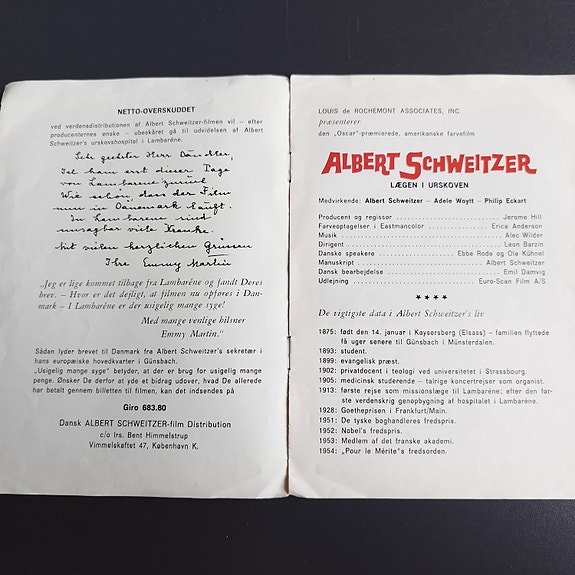 NETTO-OVERSKUDDET
ved verdensdistributionen af Albert Schweitzer-filmen vil – efter
producenternes ønske – ubeskåret gå til udvidelsen af Albert
Schweitzer's urskovhospital i Lambaréne.
Sehr geehrter Herr Dändler,
Ich kam erst dieser Tage
von Lambarene zurück
Wie schön, dass der Film
nun in Dänemark läuft.
In Lambarene sind
unsagbar viele Kranke.
Mit vielen herzlichen Grüssen
Ihre Emmy Martin
„Jeg er lige kommet tilbage fra Lambaréne og fandt Deres
brev. – Hvor er det dejligt, at filmen nu opføres i Dan-
mark – I Lambaréne er der usigelig mange syge!
Med mange venlige hilsner
Emmy Martin.“
Sådan lyder brevet til Danmark fra Albert Schweitzer's sekretær i
hans europæiske hovedkvarter i Günsbach.
„Usigelig mange syge“ betyder, at der er brug for usigelig mange
penge. Ønsker De derfor at yde et bidrag udover, hvad De allerede
har betalt gennem billetten til filmen, kan det indsendes på
Giro 683.80
Dansk ALBERT SCHWEITZER-film Distribution
c/o lrs. Bent Himmelstrup
Vimmelskaftet 47, København K.
LOUIS de ROCHEMONT ASSOCIATES, INC.
præsenterer
den „Oscar“-præmierede, amerikanske farvefilm
ALBERT SCHWEITZER
LÆGEN I URSKOVEN
Medvirkende: Albert Schweitzer – Adele Woytt – Philip Eckart
Producent og regissør . . . . . . . . . . . . . . . . . . . . Jerome Hill
Farveoptagelser i Eastmancolor . . . . . . . . . . . . Erica Anderson
Musik . . . . . . . . . . . . . . . . . . . . . . . . . . . . Alec Wilder
Dirigent . . . . . . . . . . . . . . . . . . . . . . . . . . Leon Barzin
Danske speakere . . . . . . . . . . . . . Ebbe Rode og Ole Kühnel
Manuskript . . . . . . . . . . . . . . . . . . . . . Albert Schweitzer
Dansk bearbejdelse . . . . . . . . . . . . . . . . . . . Emil Damvig
Udlejning . . . . . . . . . . . . . . . . . . . . . . Euro-Scan Film A/S
★ ★ ★ ★
De vigtigste data i Albert Schweitzer's liv
1875: født den 14. januar i Kaysersberg (Elsass) – familien flyttede
få uger senere til Günsbach i Münsterdalen.
1893: student.
1899: evangelisk præst.
1902: privatdocent i teologi ved universitetet i Strassbourg.
1905: medicinsk studerende – talrige koncertrejser som organist.
1913: første rejse som missionslæge til Lambaréne; efter den før-
ste verdenskrig genopbygning af hospitalet i Lambaréne.
1928: Goetheprisen i Frankfurt/Main.
1951: De tyske boghandleres fredspris.
1952: Nobel's fredspris.
1953: Medlem af det franske akademi.
1954: „Pour le Mérite“s fredsorden.